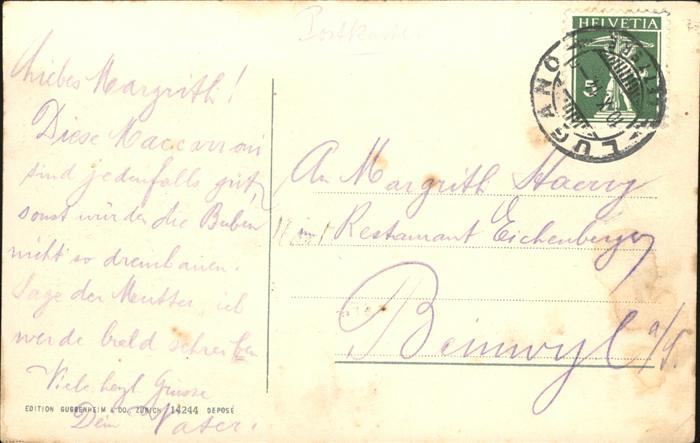 Postkarte
Liebes Margrith!
Diese Maccarroni
sind jedenfalls gut,
sonst würden die Buben
nicht so dreinbauen.
Sage der Mutter, ich
werde bald schreiben
Viele herzl. Grüsse
Dein Vater.
EDITION GUGGENHEIM & CO. ZÜRICH 14244 DEPOSÉ
HELVETIA
5
LUGANO
An Margrith Haerry
Restaurant Eichenberger
Beinwyl a/S.